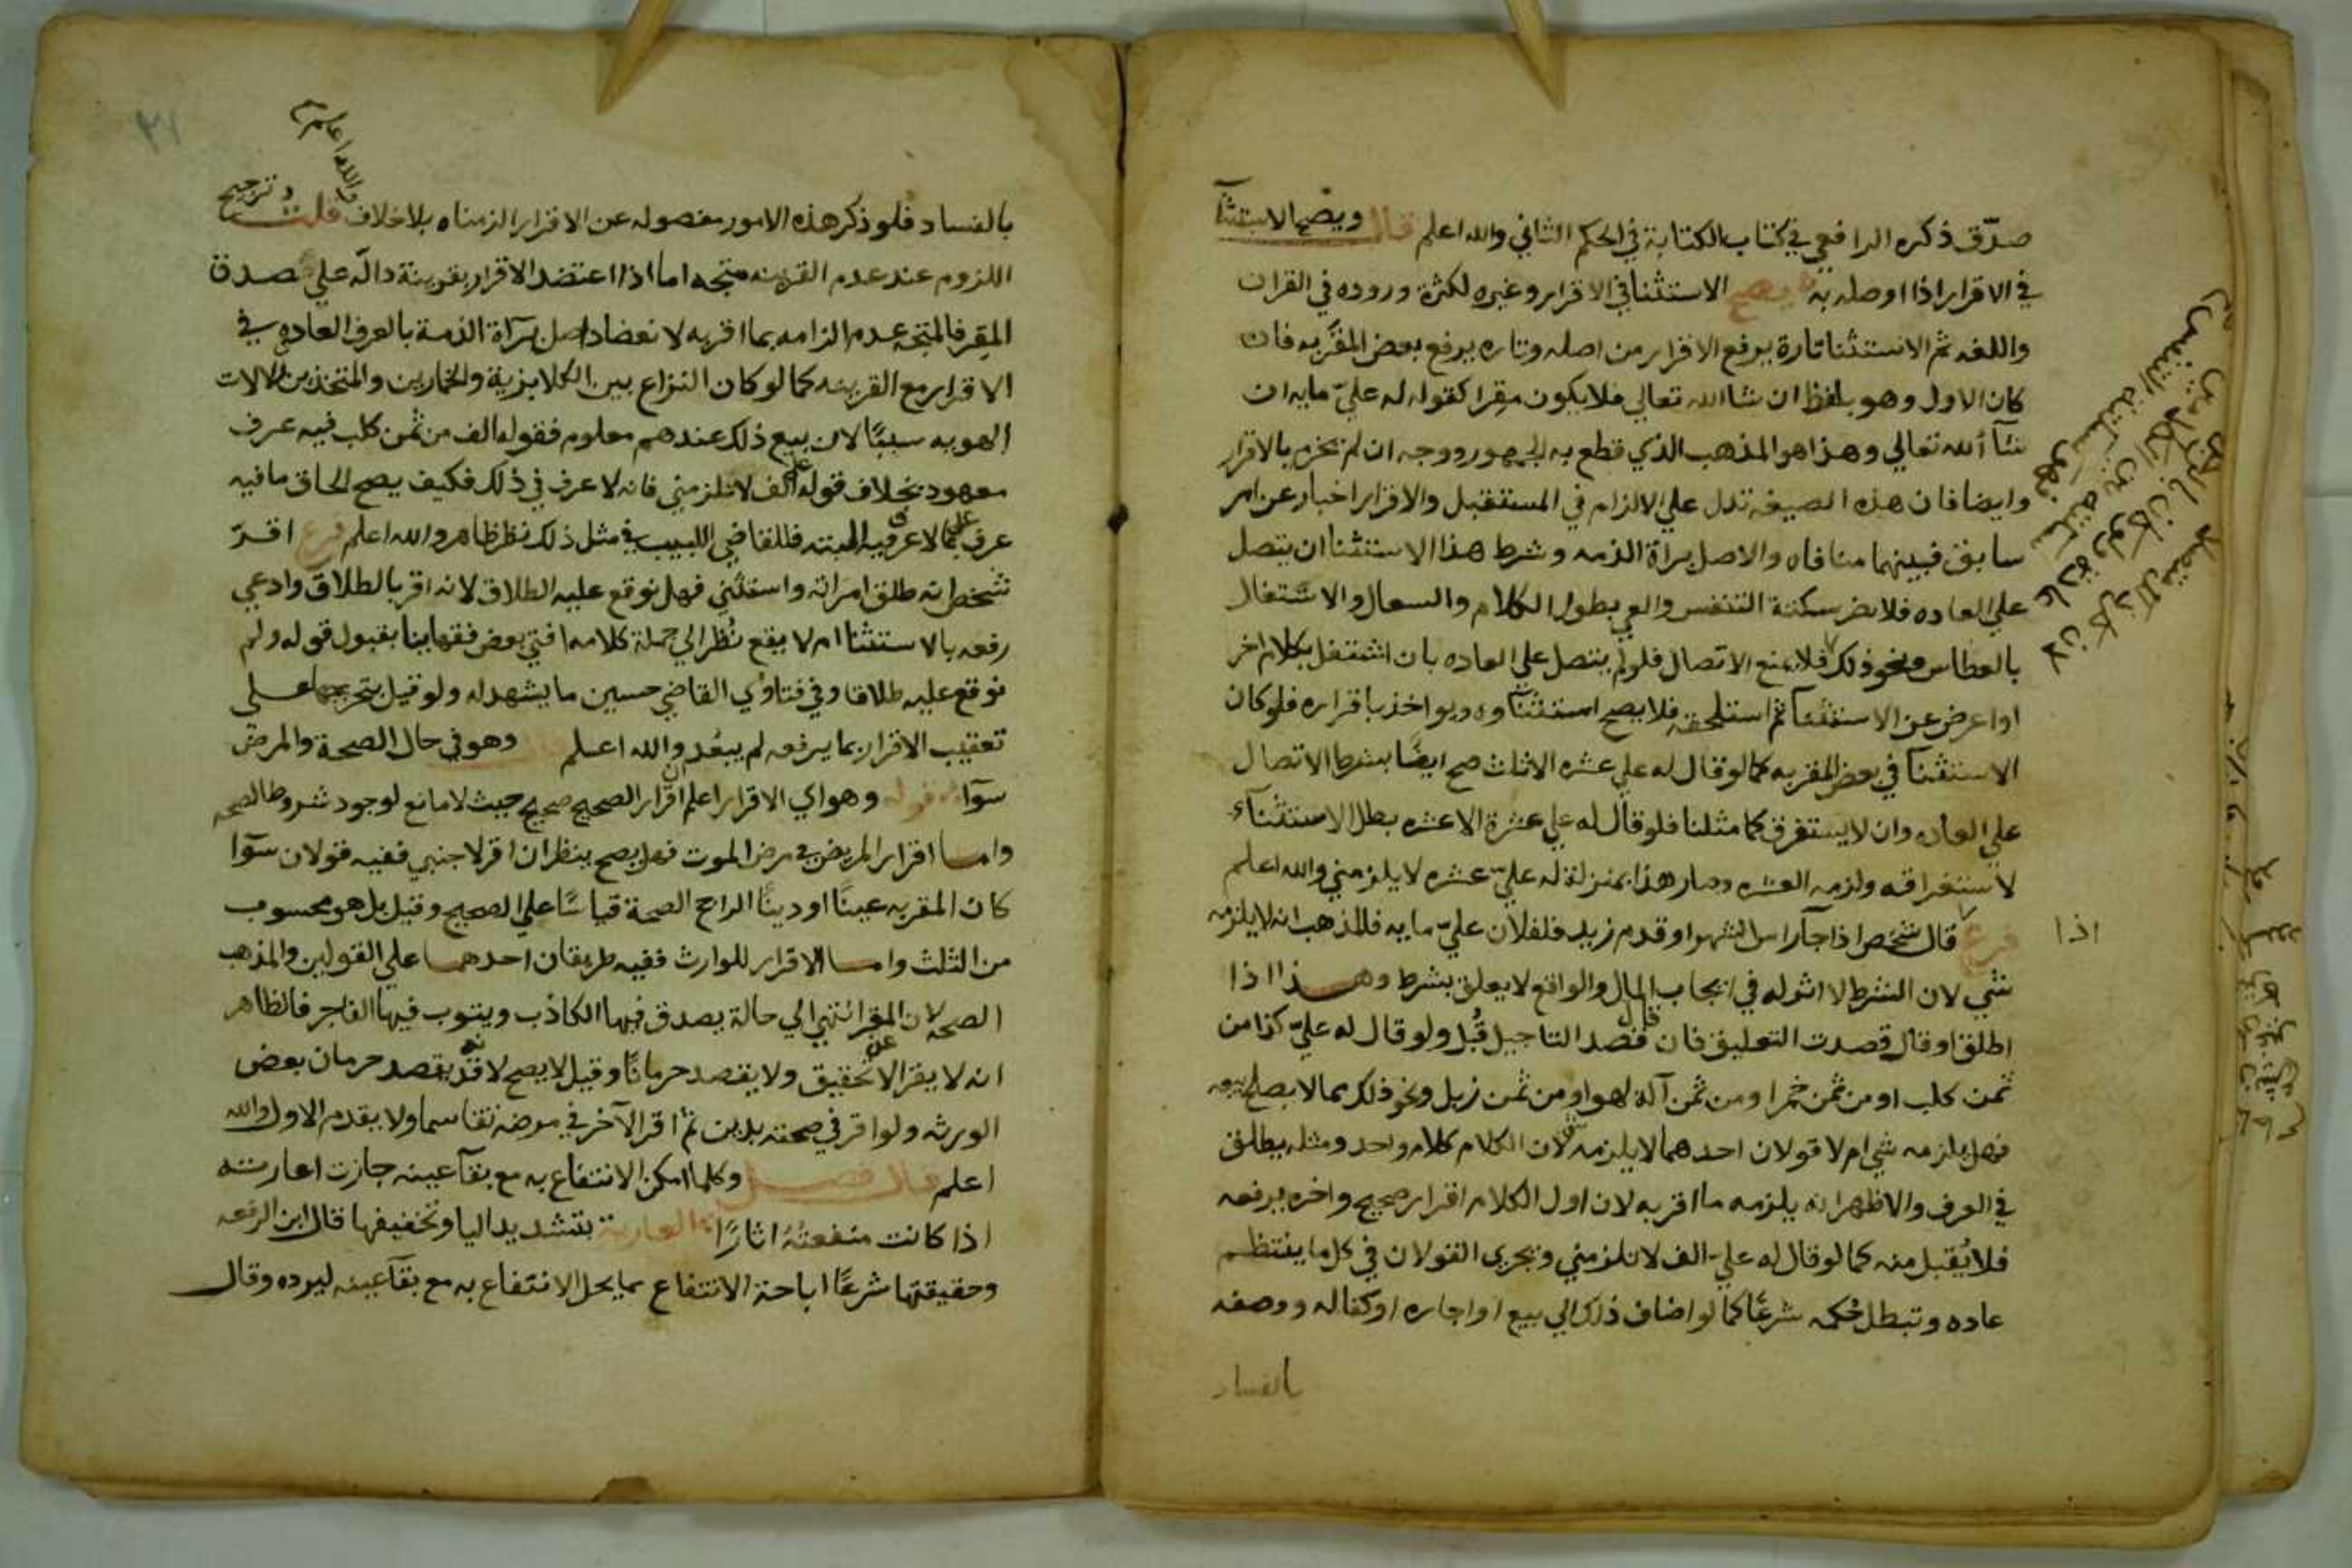 صدّق ذكره الرافعي في كتاب الكتابة في الحكم الثاني والله اعلم قال ويصح الاستثنآ
في الاقرار اذا اوصله به يصح الاستثنا في الاقرار وغيره لكثرة وروده في القران
واللغه ثم الاستثنا تارة يرفع الاقرار من اصله وتاره يرفع بعض المقربه فان
كان الاول وهو بلفظ ان شا الله تعالي فلا يكون مقرا كقوله له عليّ مايه ان
شآ الله تعالي وهذا هو المذهب الذي قطع به الجمهور ووجه ان لم يجزم بالاقرار
وايضا فان هذه الصيغه تدل علي الالزام في المستقبل والاقرار اخبار عن امر
سابق فبينهما منافاه والاصل براة الذمه وشرط هذا الاستثنا ان يتصل
علي العاده فلا يضر سكتة التنفس والعي بطول الكلام والسعال والاشتغال
بالعطاس ونحو ذلك فلا يمنع الاتصال فلو لم يتصل علي العاده بان اشتغل بكلام اخر
او اعرض عن الاستثنآ ثم استلحقه فلا يصح استثنآوه ويواخذ باقراره فلو كان
الاستثنآ في بعض المقربه كما لو قال له علي عشره الا ثلث صح ايضًا بشرط الاتصال
علي العاده وان لا يستغرق كما مثلنا فلو قال له علي عشرة الا عشره بطل الاستثنآء
لاستغراقه ولزمه العشره وصار هذا بمنزلة له عليّ عشره لا يلزمني والله اعلم
فرع قال شخص اذا جآ راس الشهر او قدم زيد فلفلان عليّ مايه فالمذهب انه لا يلزمه
اذا
شي لان الشرط لا اثر له في ايجاب المال والواقع لا يعلق بشرط وهذا اذا
اطلق او قال قصدت التعليق فان قال قصد التاجيل قُبل ولو قال له عليّ كذا من
ثمن كلب او من ثمن خمر او من ثمن آلة لهو او من ثمن زبل ونحو ذلك مما لا يصلح بيعه
فهل يلزمه شي ام لا قولان احدهما لا يلزمه لان الكلام كلام واحد ومثله يطلق
في العرف والاظهر انه يلزمه ما اقربه لان اول الكلام اقرار صحيح واخره يرفعه
فلا يُقبل منه كما لو قال له علي الف لا تلزمني ويجري القولان في كل ما ينتظم
عاده وتبطل حُكمه شرعًا كما لو اضاف ذلك الي بيع او اجاره او كفاله ووصفه
بالفساد
٣١
والله اعلم
بالفساد فلو ذكر هذه الامور مفصوله عن الاقرار الزمناه بلا خلاف قلت وترجيح
اللزوم عند عدم القرينه متجه اما اذا اعتضد الاقرار بقرينة دالّه علي صدق
المقر فالمتجه عدم الزامه بما اقربه لانعضاد اصل برآة الذمة بالعرف العاده في
الاقرار مع القرينه كما لو كان النزاع بين الكلابزية والخمارين والمتخذين الالات
الهوبه سببًا لان بيع ذلك عندهم معلوم فقوله الف من ثمن كلب فيه عرف
معهود بخلاف قوله علي الف لا تلزمني فانه لا عرف في ذلك فكيف يصح الحاق ما فيه
عرف علي ما لا عرف فيه البتته فللقاضي اللبيب في مثل ذلك نظر ظاهر والله اعلم فرع اقرّ
شخص انه طلق امراته واستثني فهل نوقع عليه الطلاق لانه اقر بالطلاق وادعي
رفعه بالاستثنا ام لا يقع نُظر الي جملة كلامه افتي بعض فقهاينا بقبول قوله ولم
نوقع عليه طلاقا وفي فتاوي القاضي حسين ما يشهد له ولو قيل بتخريجها علي
تعقيب الاقرار بما يرفعه لم يبعُد والله اعلم قال وهو في حال الصحة والمرض
سوآ قوله وهو اي الاقرار اعلم ان اقرار الصحيح صحيح حيث لا مانع لوجود شروط الصحه
واما اقرار المريض في مرض الموت فهل يصح ينظر ان اقر لاجنبي ففيه قولان سوآ
كان المقربه عينًا او دينًا الراجح الصحة قياسًا علي الصحيح وقيل بل هو محسوب
من الثلث واما الاقرار للوارث ففيه طريقان احدهما علي القولين والمذهب
الصحه لان المقر انتهي الي حالة يصدق فيها الكاذب ويتوب فيها الفاجر فالظاهر
انه لا يقر الا عن تحقيق ولا يقصد حرمانًا وقيل لا يصح لانه قد يقصد حرمان بعض
الورثه ولو اقر في صحته بدين ثم اقر لآخر في مرضه تقاسما ولا يقدم الاول والله
اعلم قال فصل وكلما امكن الانتفاع به مع بقآ عينه جازت اعارته
اذا كانت منفعتُهُ اثارًا العارية بتشديد اليا وتخفيفها قال ابن الرفعه
وحقيقتها شرعًا اباحة الانتفاع بما يحل الانتفاع به مع بقآ عينه ليرده وقال